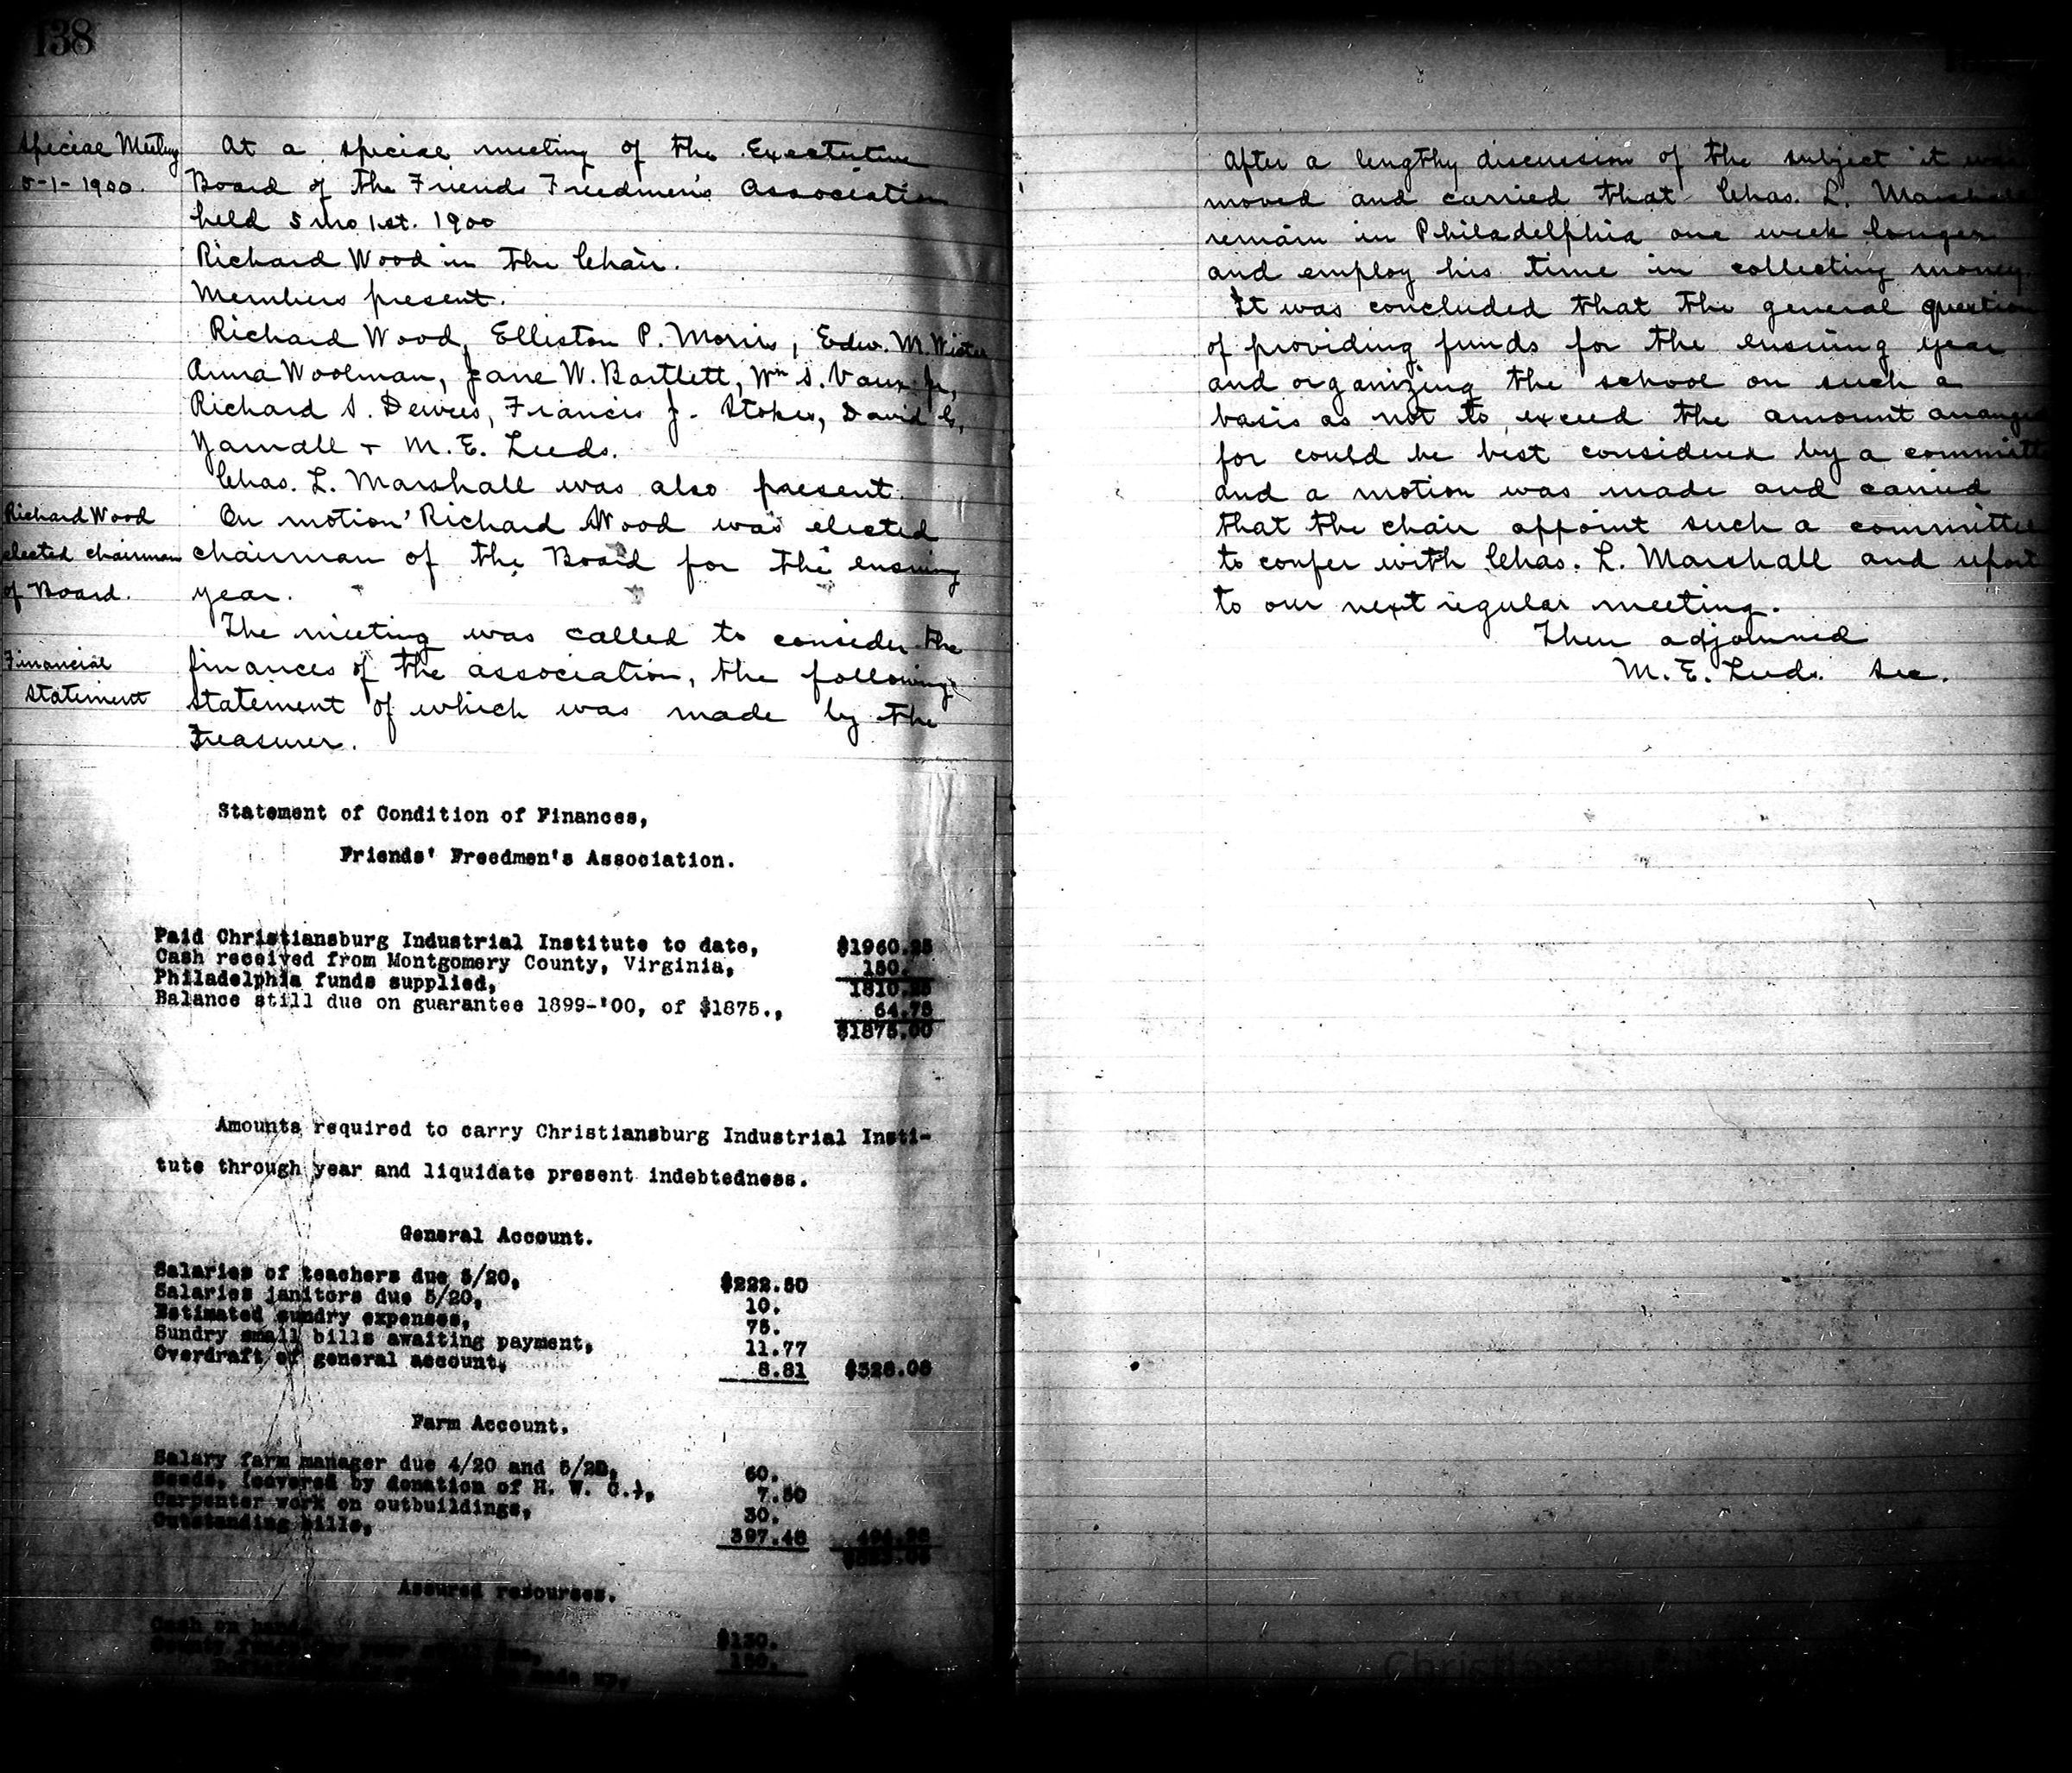 138
Special Meeting
5-1-1900.
At a special meeting of the Exectutive
Board of the Friends Freedmen's Association
held 5 mo 1st. 1900
Richard Wood in the Chair.
Members present.
Richard Wood, Elliston P. Morris, Edw. M. Wister
Anna Woolman, Jane W. Bartlett, Wm S. Vaux Jr,
Richard S. Dewees, Francis J. Stokes, David G,
Yarnall + M. E. Leeds.
Chas. L. Marshall was also present.
Richard Wood
elected chairman
of Board.
On motion Richard Wood was elected
chairman of the Board for the ensuing
year.
Financial
Statement
The meeting was called to consider the
finances of the association, the following
statement of which was made by the
Treasurer.
Statement of Condition of Finances,
Friends' Freedmen's Association.
Paid Christiansburg Industrial Institute to date, $1960.25
Cash received from Montgomery County, Virginia, 150.
Philadelphia funds supplied, 1810.25
Balance still due on guarantee 1899-'00, of $1875., 64.75
$1875.00
Amounts required to carry Christiansburg Industrial Insti-
tute through year and liquidate present indebtedness.
General Account.
Salaries of teachers due 5/20, $222.50
Salaries janitors due 5/20, 10.
Estimated sundry expenses, 75.
Sundry small bills awaiting payment, 11.77
Overdraft of general account, 8.81 $328.08
Farm Account.
Salary farm manager due 4/20 and 5/20, 60.
Seeds, (covered by donation of H. W. C.), 7.50
Carpenter work on outbuildings, 30.
Outstanding bills, 397.48
Assured resources.
Cash on hand, $130.
made up,
After a lengthy discussion of the subject it was
moved and carried that Chas. L. Marshall
remain in Philadelphia one week longer
and employ his time in collecting money.
It was concluded that the general question
of providing funds for the ensuing year
and organizing the school on such a
basis as not to exceed the amount arranged
for could be best considered by a committee
and a motion was made and carried
that the chair appoint such a committee
to confer with Chas. L. Marshall and report
to our next regular meeting.
Then adjourned
M. E. Leeds. Sec.